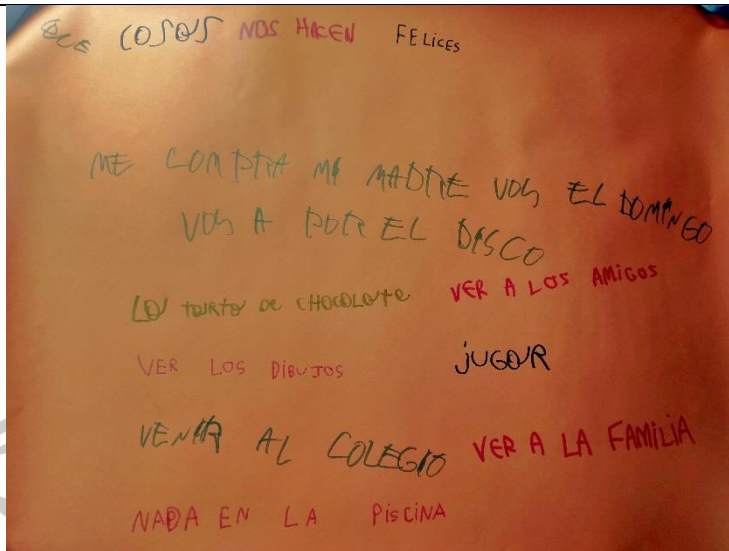 QUE COSAS NOS HACEN FELICES
ME COMPRA MI MADRE VOY EL DOMINGO
VOY A POR EL DISCO
LA TARTA DE CHOCOLATE VER A LOS AMIGOS
VER LOS DIBUJOS JUGAR
VENIR AL COLEGIO VER A LA FAMILIA
NADA EN LA PISCINA